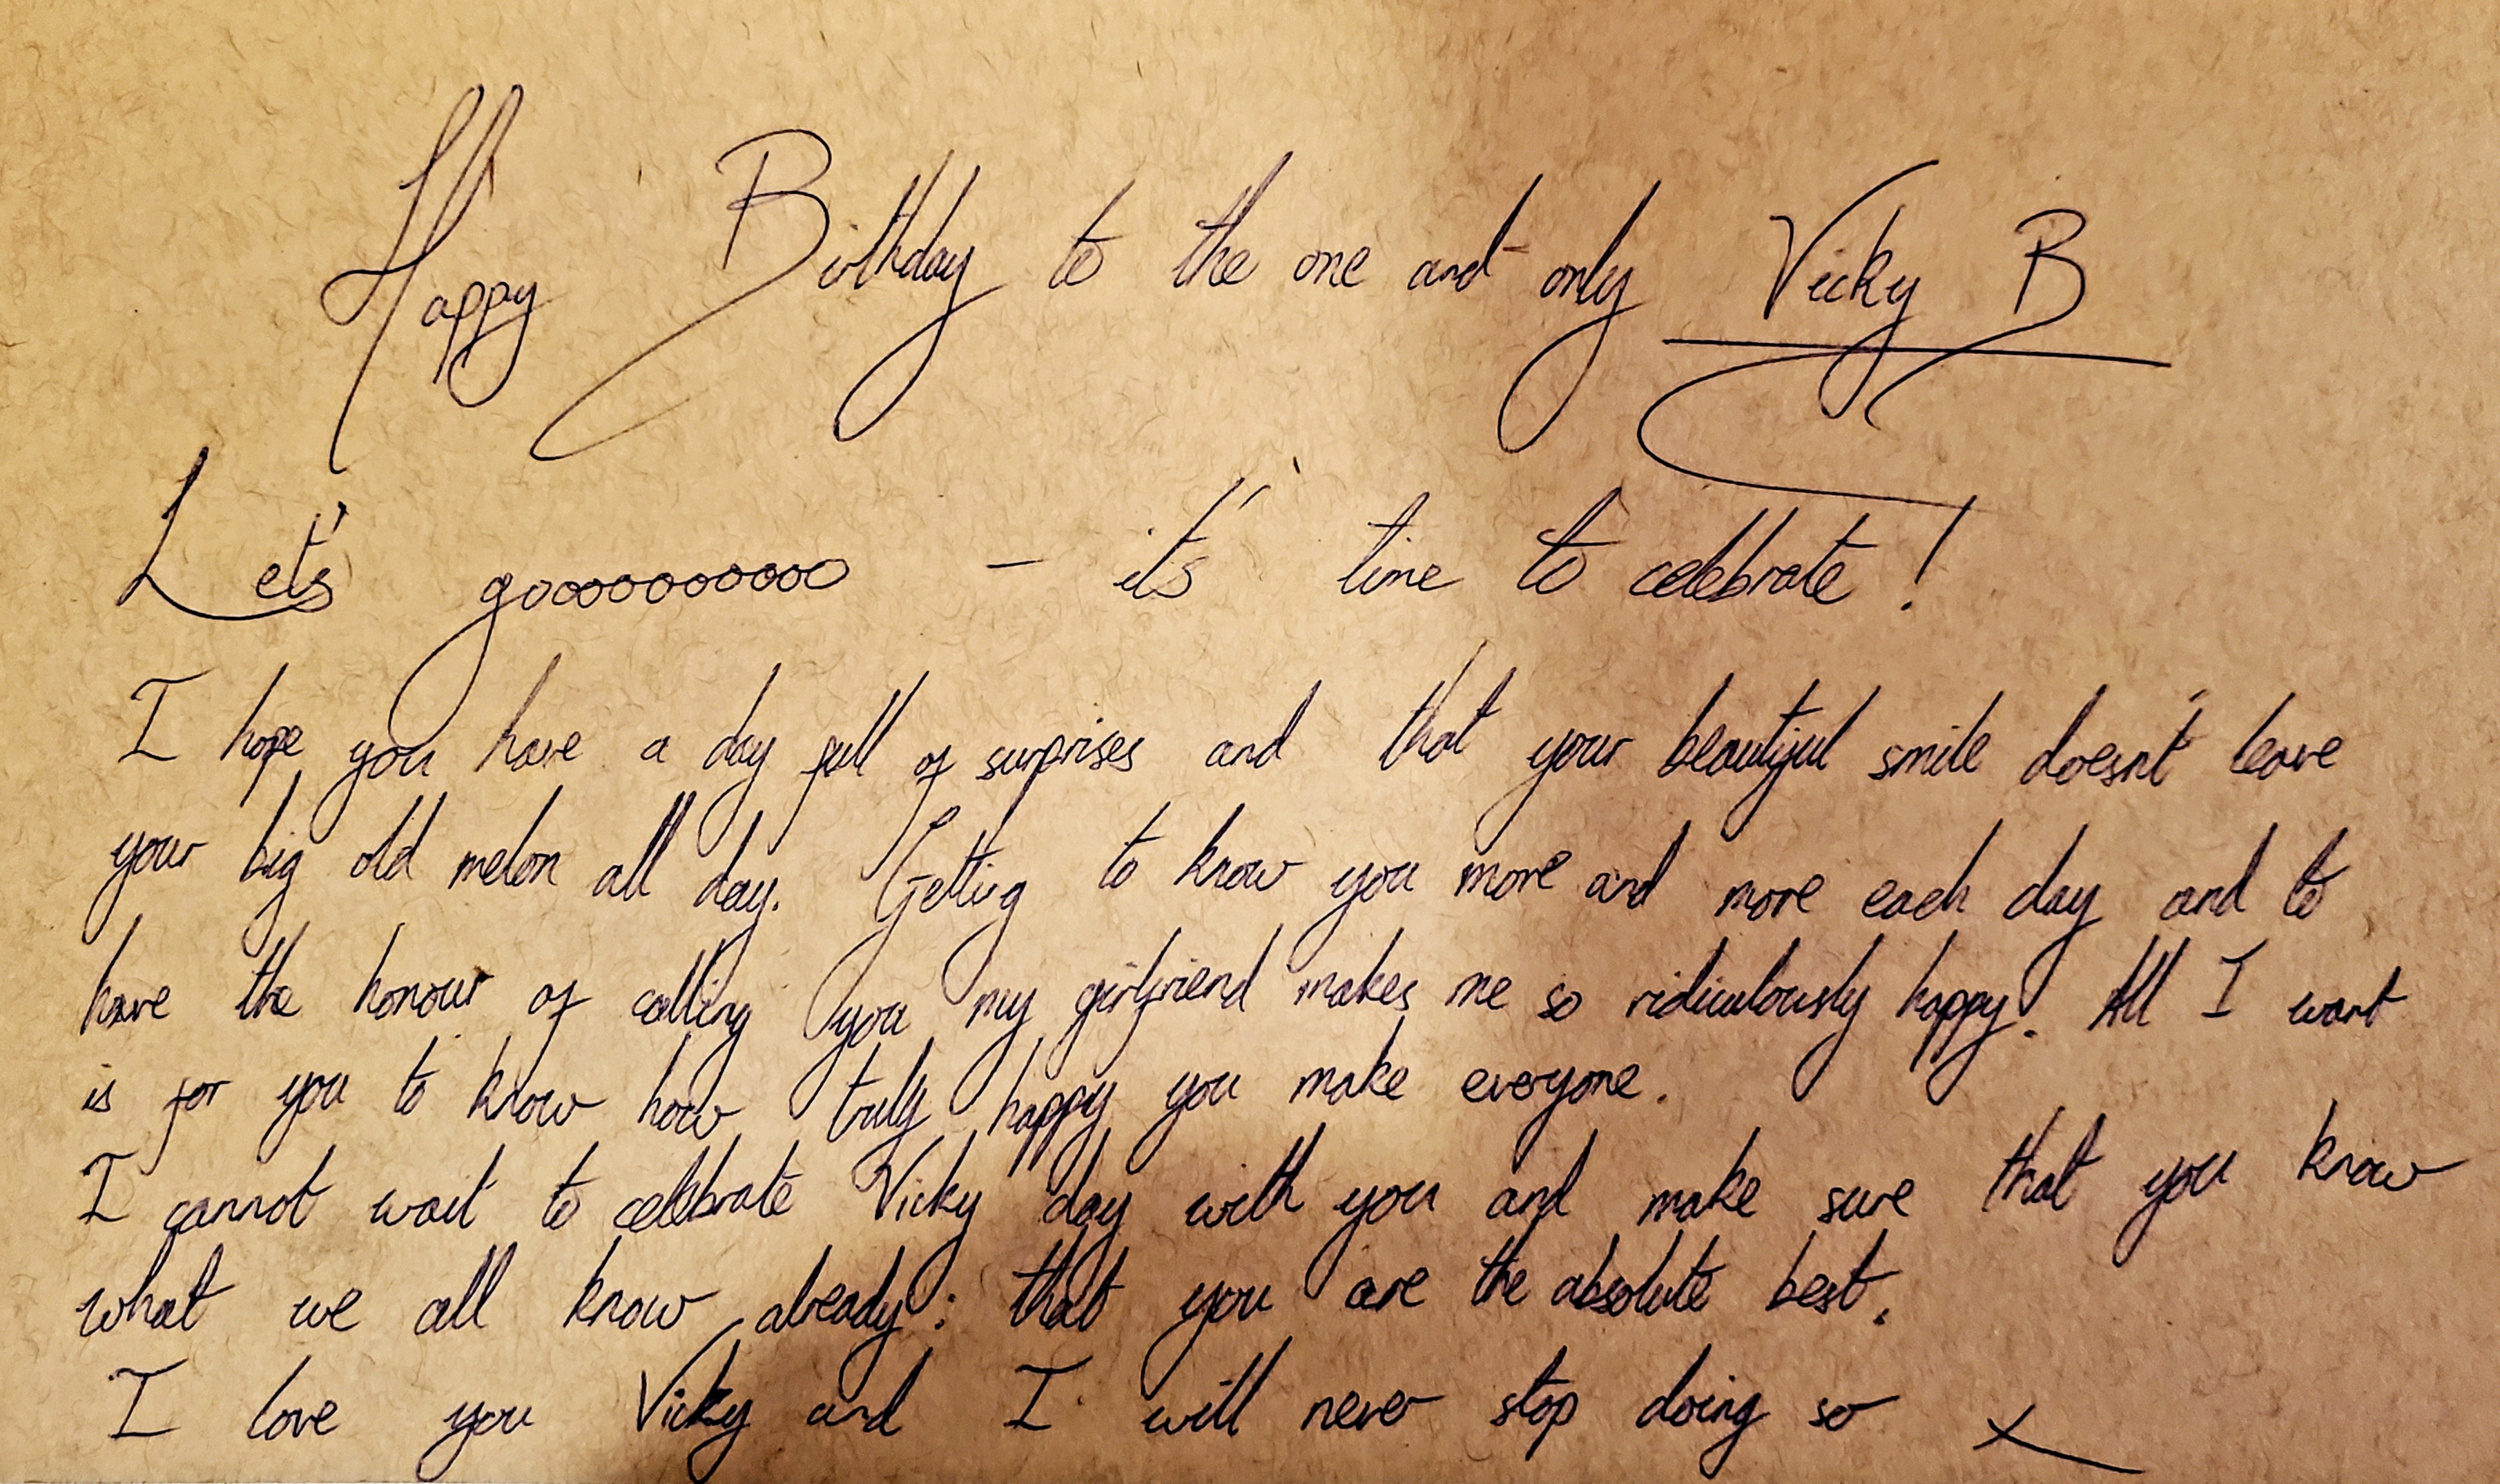 Happy Birthday to the one and only Vicky B
Let's gooooooooooo - it's time to celebrate!
I hope you have a day full of surprises and that your beautiful smile doesn't leave
your big old melon all day. Getting to know you more and more each day and to
have the honour of calling you my girlfriend makes me so ridiculously happy. All I want
is for you to know how truly happy you make everyone.
I cannot wait to celebrate Vicky day with you and make sure that you know
what we all know already: that you are the absolute best.
I love you Vicky and I will never stop doing so x